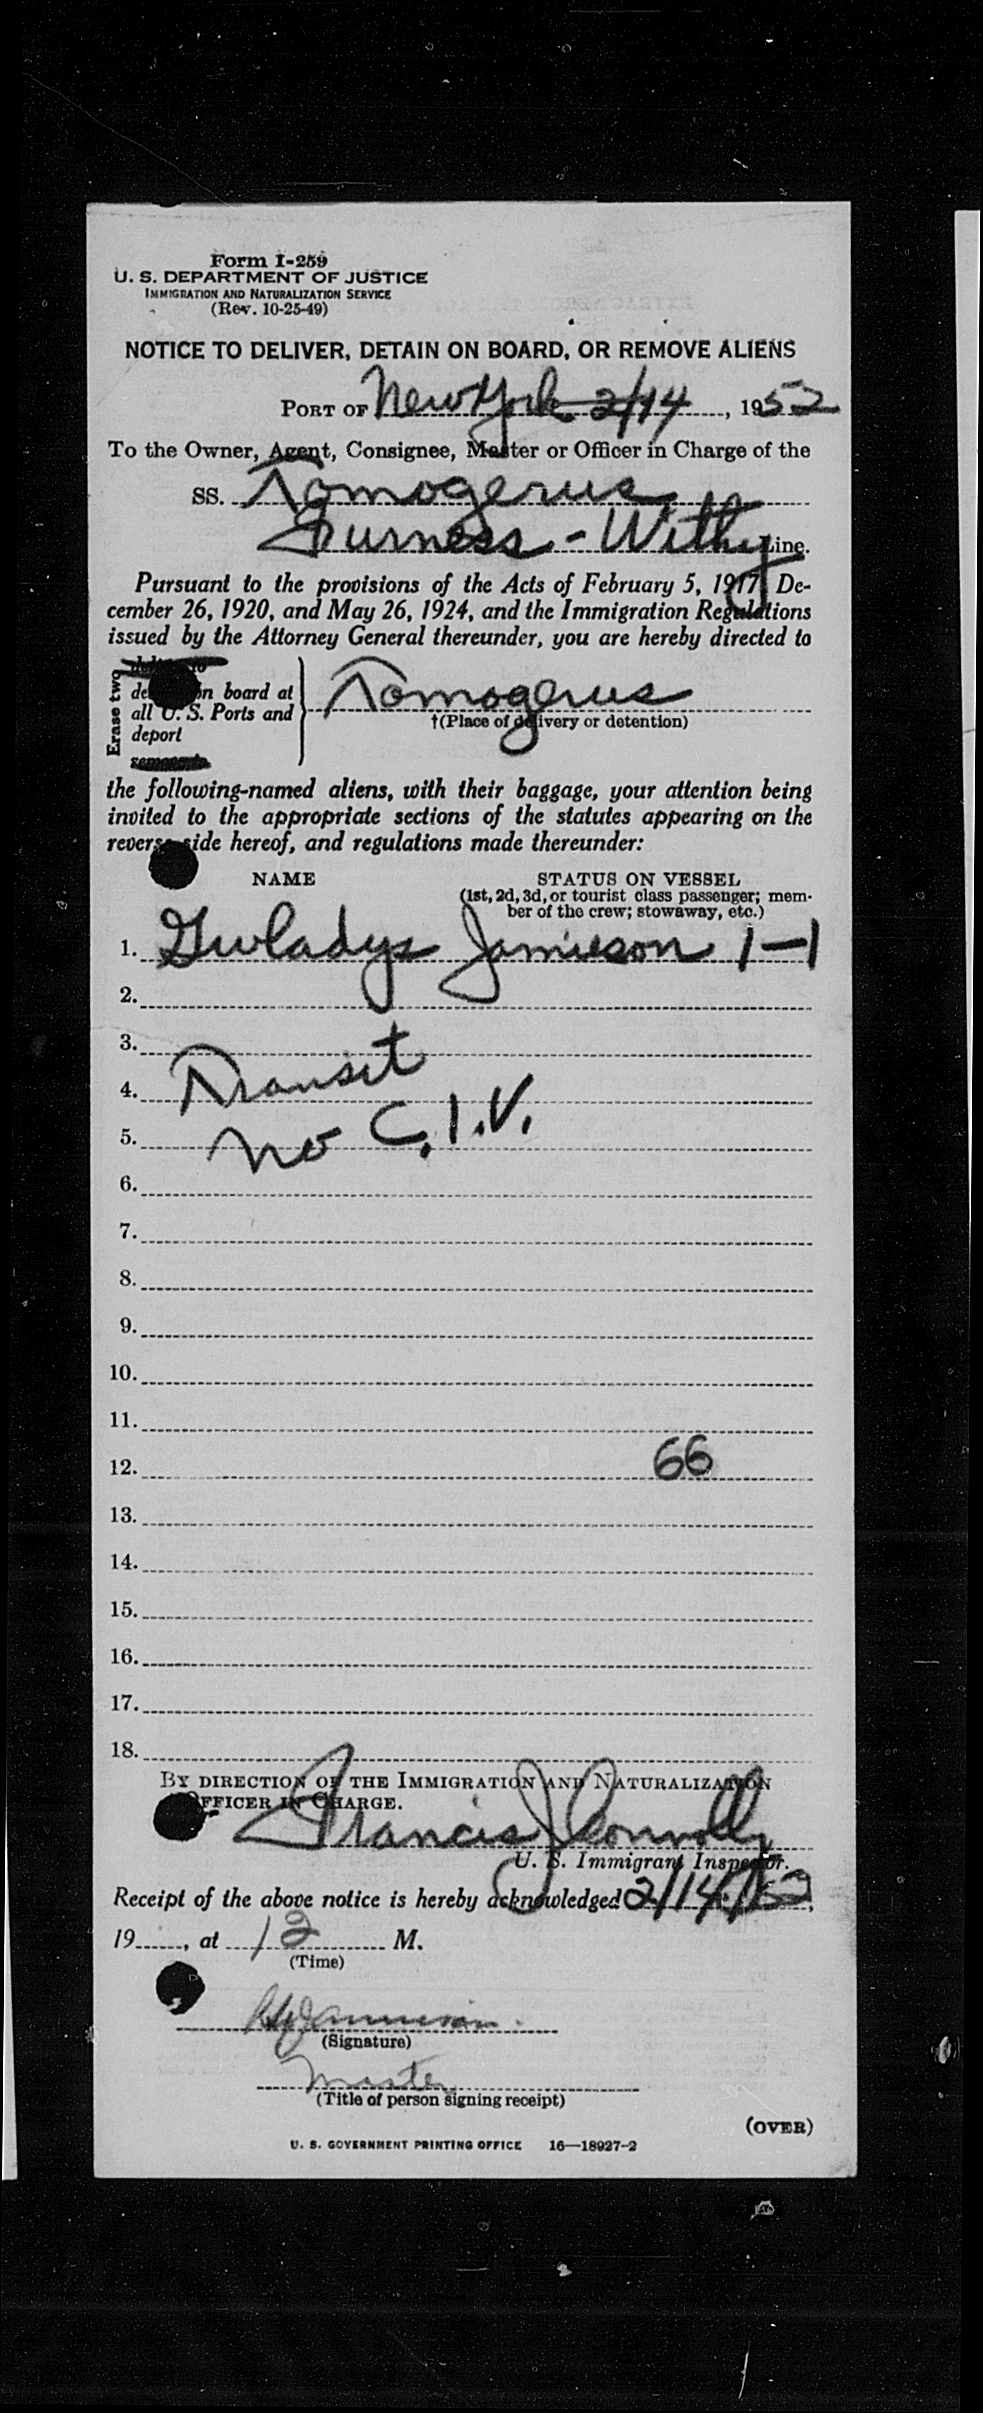 Form I-259
U. S. DEPARTMENT OF JUSTICE
IMMIGRATION AND NATURALIZATION SERVICE
(Rev. 10-25-49)
NOTICE TO DELIVER, DETAIN ON BOARD, OR REMOVE ALIENS
PORT OF New York 2/14, 1952
To the Owner, Agent, Consignee, Master or Officer in Charge of the
SS. Tomogerus
Furness - Withy Line.
Pursuant to the provisions of the Acts of February 5, 1917, De-
cember 26, 1920, and May 26, 1924, and the Immigration Regulations
issued by the Attorney General thereunder, you are hereby directed to
Erase two
on board at
all U. S. Ports and
deport
Tomogerus
†(Place of delivery or detention)
the following-named aliens, with their baggage, your attention being
invited to the appropriate sections of the statutes appearing on the
reverse side hereof, and regulations made thereunder:
NAME STATUS ON VESSEL
(1st, 2d, 3d, or tourist class passenger; mem-
ber of the crew; stowaway, etc.)
1. Gwladys Jamieson 1-1
2.
3.
4. Transit
5. no C.I.V.
6.
7.
8.
9.
10.
11.
12. 66
13.
14.
15.
16.
17.
18.
BY DIRECTION OF THE IMMIGRATION AND NATURALIZATION
OFFICER IN CHARGE.
Francis J Connolly
U. S. Immigrant Inspector.
Receipt of the above notice is hereby acknowledged 2/14/52,
19......, at 12 M.
(Time)
(Signature)
Master
(Title of person signing receipt)
(OVER)
U. S. GOVERNMENT PRINTING OFFICE 16—18927-2